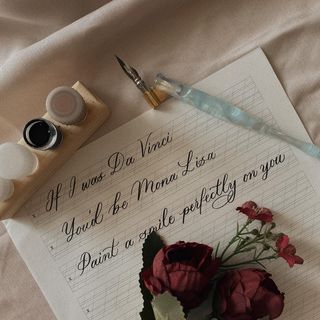 If I was Da Vinci
You'd be Mona Lisa
Paint a smile perfectly on you